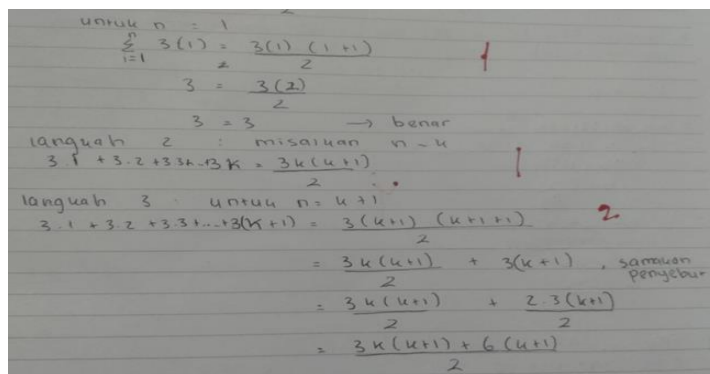 untuk n = 1
n
Σ 3(1) = 3(1) (1+1)
i=1 2
3 = 3(2)
2
3 = 3 → benar
1
langkah 2 : misalkan n = k
3.1 + 3.2 + 3.3+...+3k = 3k(k+1)
2
1
langkah 3 : untuk n = k+1
2
3.1 + 3.2 + 3.3+...+3(k+1) = 3(k+1) (k+1+1)
2
= 3k(k+1) + 3(k+1) , samakan
2 penyebut
= 3k(k+1) + 2.3(k+1)
2 2
= 3k(k+1) + 6(k+1)
2